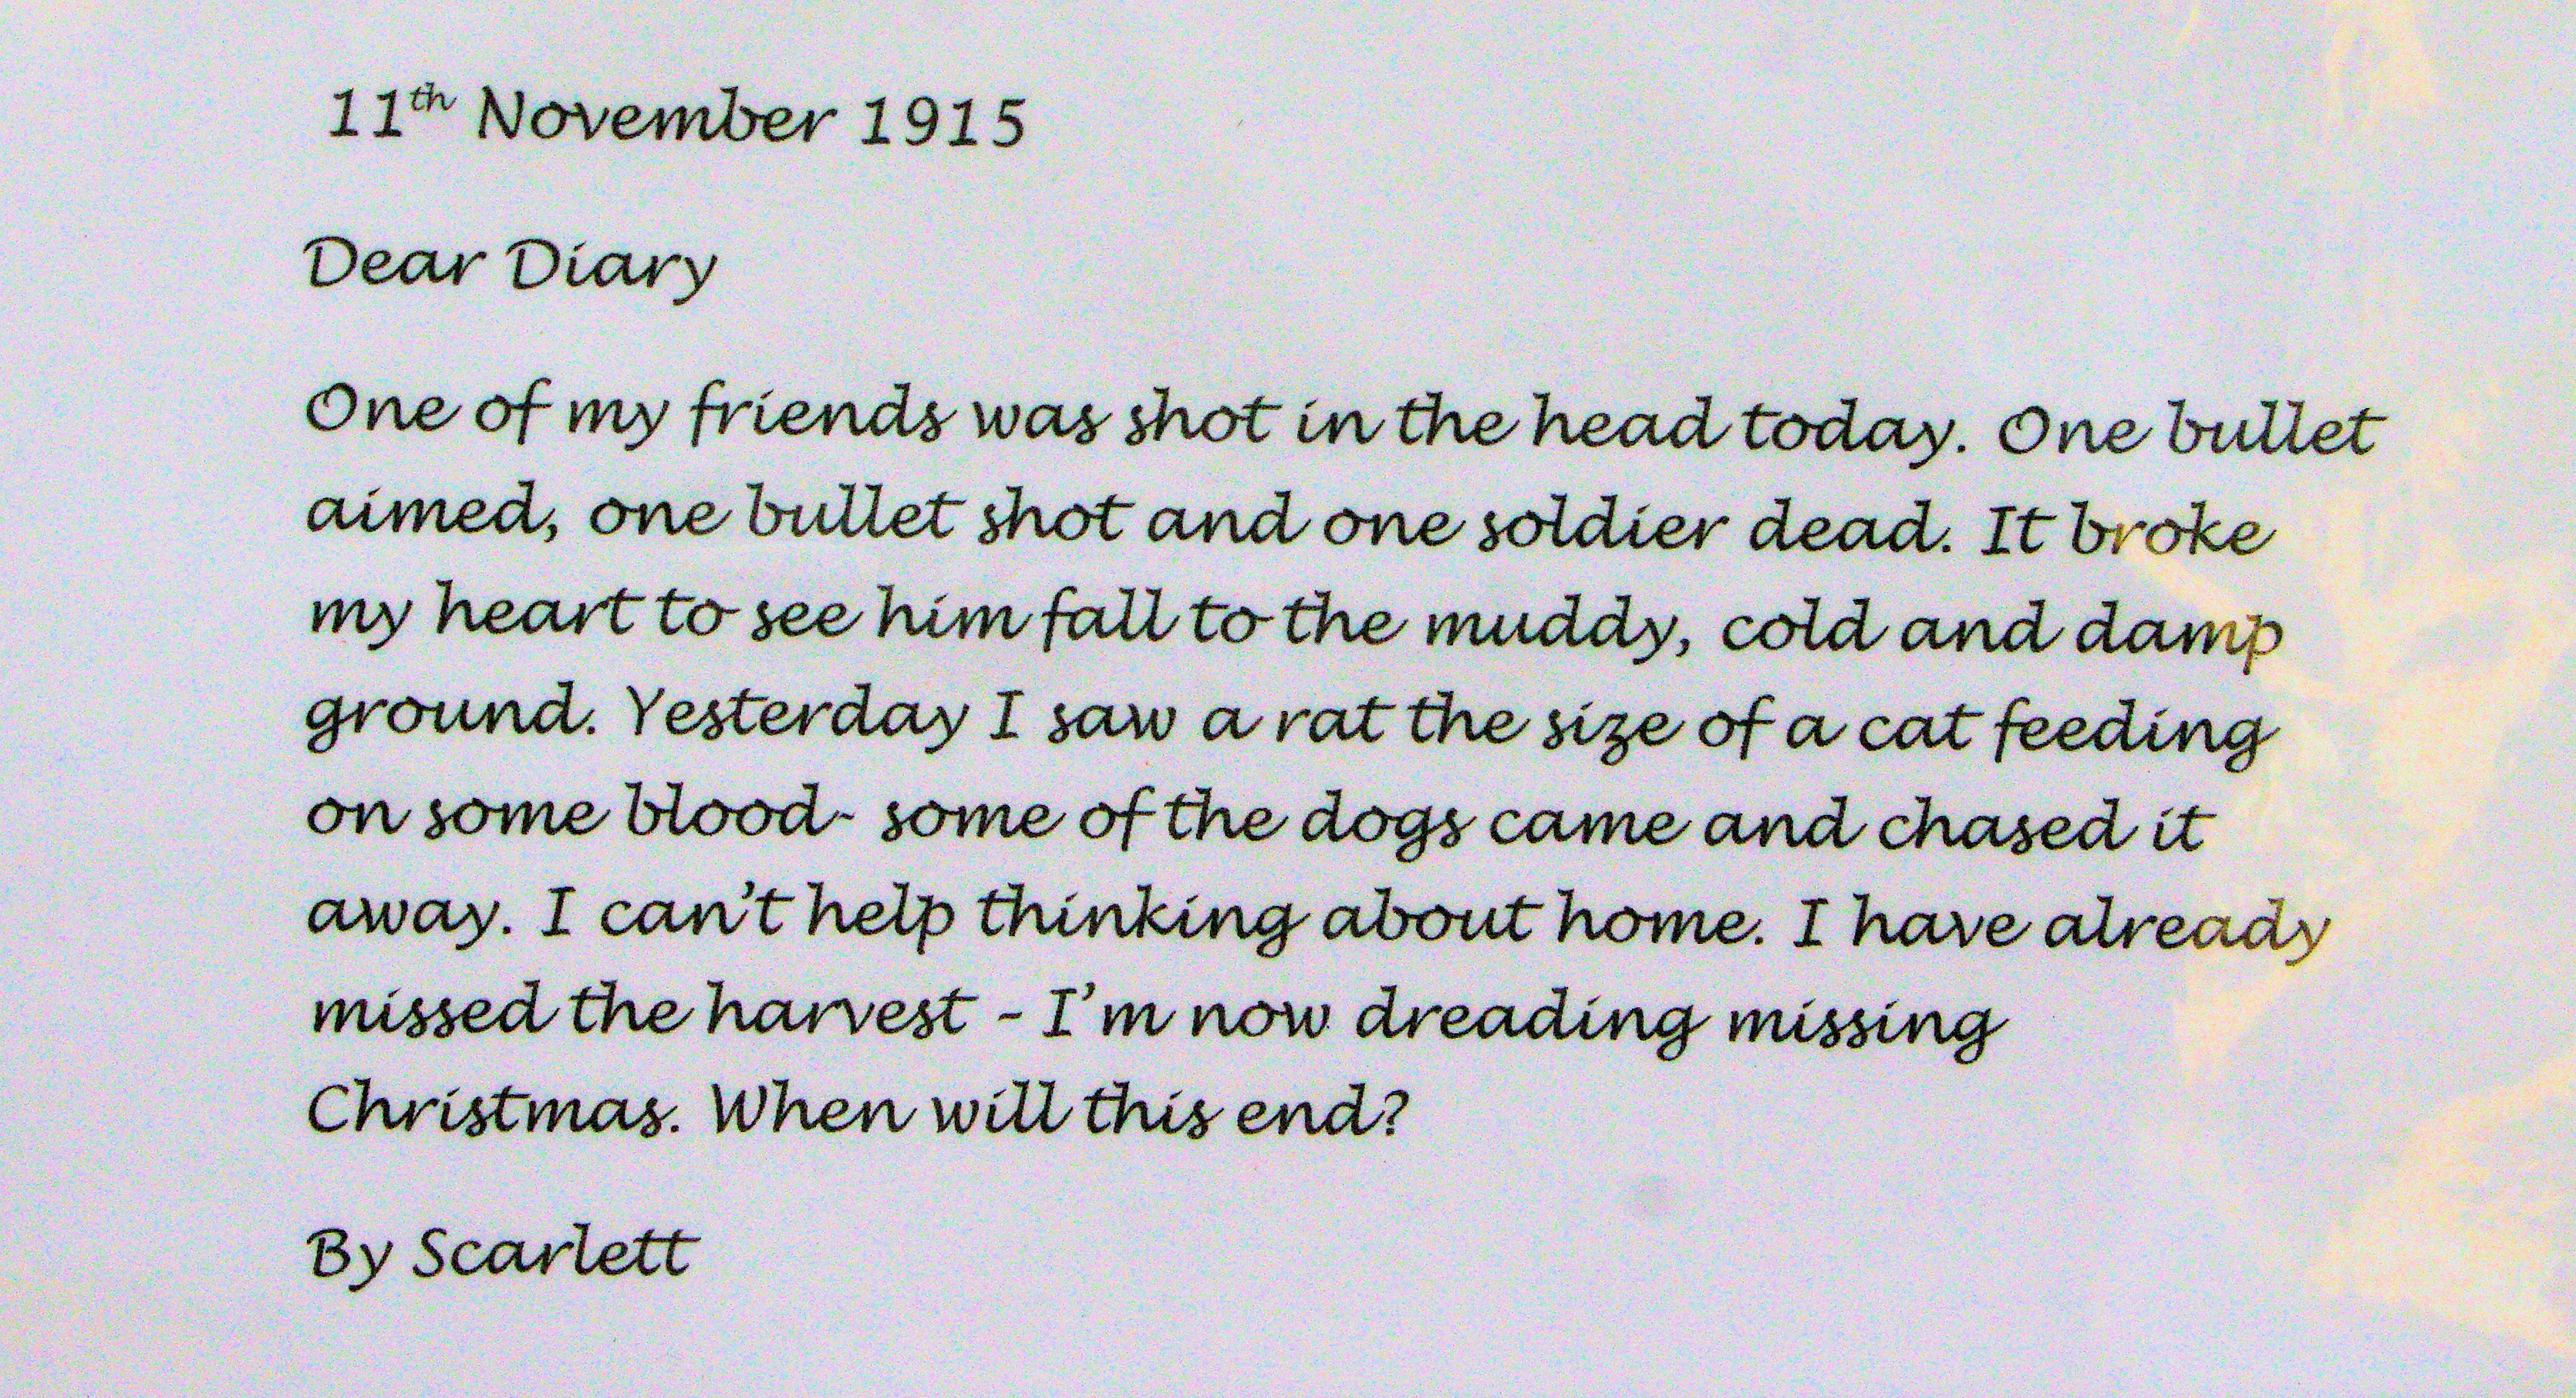 11th November 1915
Dear Diary
One of my friends was shot in the head today. One bullet
aimed, one bullet shot and one soldier dead. It broke
my heart to see him fall to the muddy, cold and damp
ground. Yesterday I saw a rat the size of a cat feeding
on some blood- some of the dogs came and chased it
away. I can't help thinking about home. I have already
missed the harvest - I'm now dreading missing
Christmas. When will this end?
By Scarlett